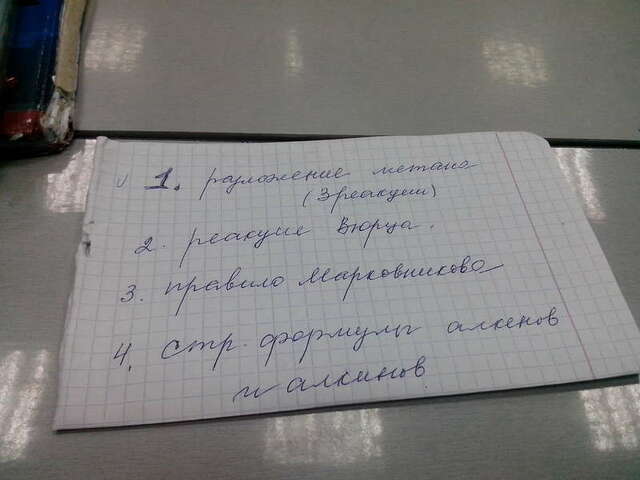 1. разложение метана
(3 реакции)
2. реакция Вюрца.
3. правило Марковникова
4. стр. формулы алкенов
и алкинов